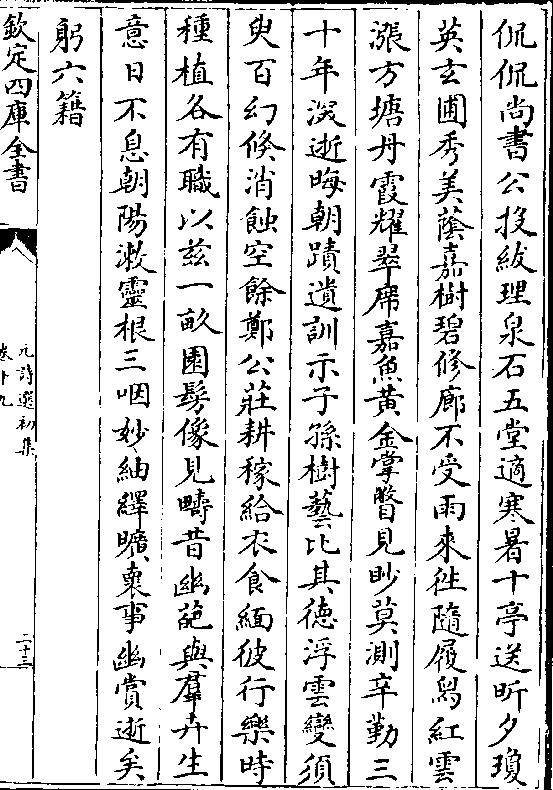 侃侃尚書公投紱理泉石五堂適寒暑十亭送昕夕瓊
英玄圃秀美蔭嘉樹碧修廊不受雨來徃隨履舄紅雲
漲方塘丹霞耀翠席嘉魚黄金掌瞥見眇莫測辛勤三
十年溪逝晦朝蹟遺訓示子孫樹藝比其德浮雲變須
臾百幻倐消蝕空餘鄭公莊耕稼給衣食緬彼行樂時
種植各有職以兹一畝園髣像見疇昔幽葩與羣卉生
意日不息朝陽漱靈根三咽妙紬繹曠裏事幽賞逝矣
躬六籍
欽定四庫全書
元詩選初集
卷十九
二十三